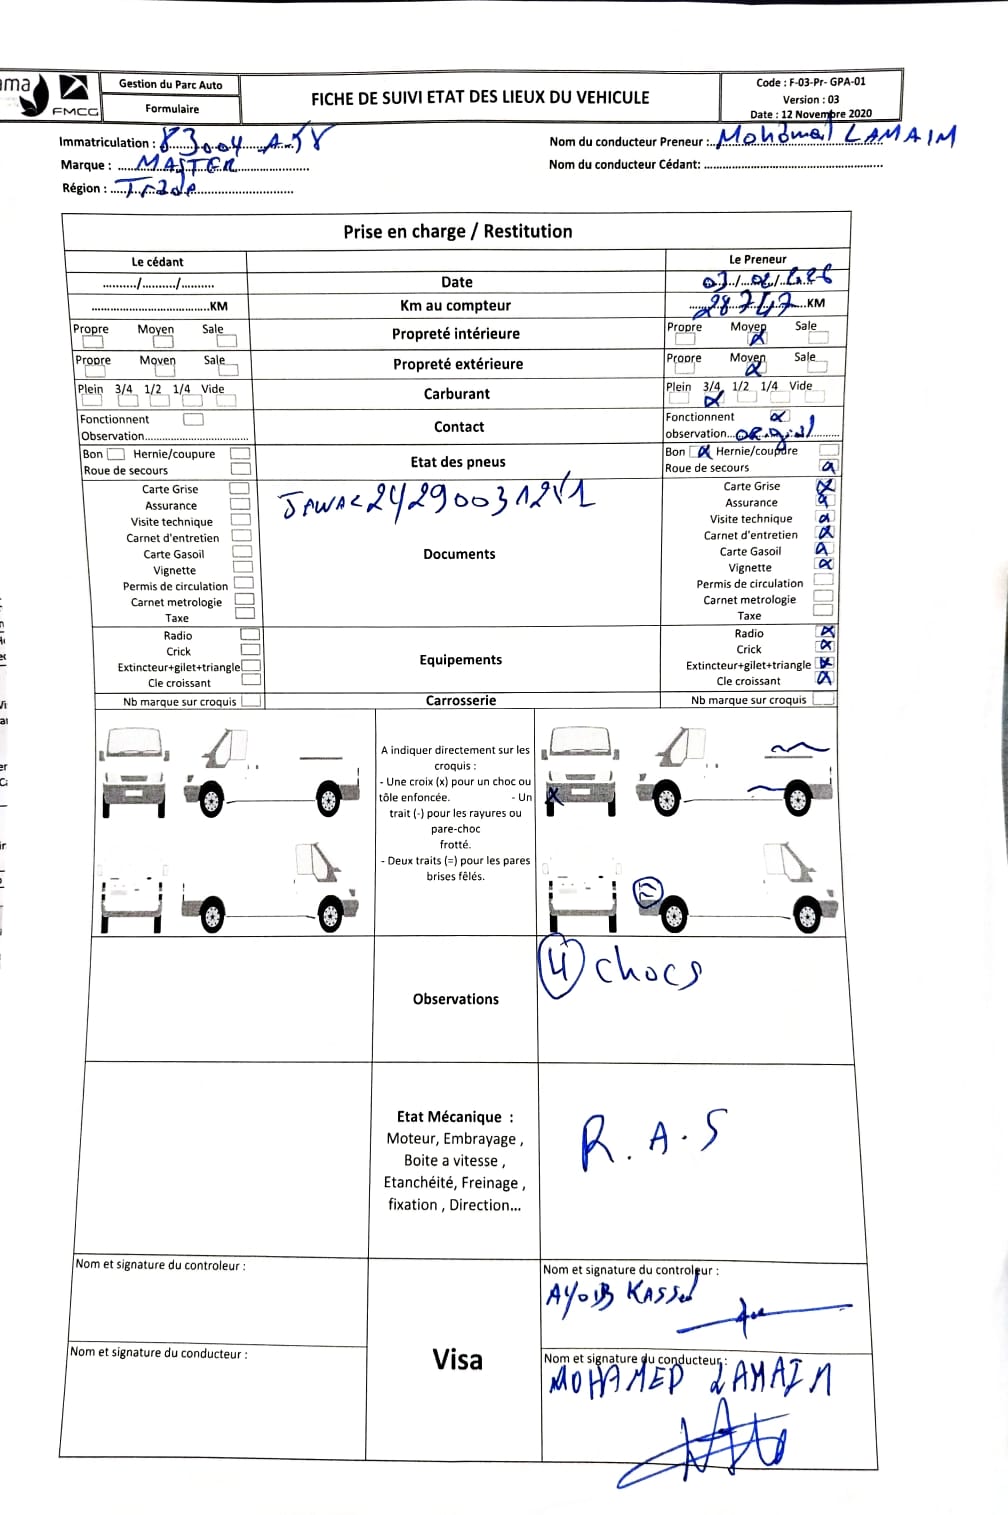 ama
FMCG
Gestion du Parc Auto
Formulaire
FICHE DE SUIVI ETAT DES LIEUX DU VEHICULE
Code : F-03-Pr- GPA-01
Version : 03
Date : 12 Novembre 2020
Immatriculation : 83004 A
Nom du conducteur Preneur : Mohamed LAMAIM
Marque : MASTER
Nom du conducteur Cédant:
Région : Trade
Prise en charge / Restitution
Le cédant
Le Preneur
........./........./.........
Date
03/02/
KM
Km au compteur
28747 KM
Propre Moyen Sale
Propreté intérieure
Propre Moyen Sale
Propre Moyen Sale
Propreté extérieure
Propre Moyen Sale
Plein 3/4 1/2 1/4 Vide
Carburant
Plein 3/4 1/2 1/4 Vide
Fonctionnent
Observation
Contact
Fonctionnent
observation original
Bon Hernie/coupure
Roue de secours
Etat des pneus
Bon Hernie/coupure
Roue de secours
Carte Grise
Assurance
Visite technique
Carnet d'entretien
Carte Gasoil
Vignette
Permis de circulation
Carnet metrologie
Taxe
Documents
Carte Grise
Assurance
Visite technique
Carnet d'entretien
Carte Gasoil
Vignette
Permis de circulation
Carnet metrologie
Taxe
Radio
Crick
Extincteur+gilet+triangle
Cle croissant
Equipements
Radio
Crick
Extincteur+gilet+triangle
Cle croissant
Nb marque sur croquis
Carrosserie
Nb marque sur croquis
A indiquer directement sur les
croquis :
- Une croix (x) pour un choc ou
tôle enfoncée. - Un
trait (-) pour les rayures ou
pare-choc
frotté.
- Deux traits (=) pour les pares
brises fêlés.
Observations
4 chocs
Etat Mécanique :
Moteur, Embrayage ,
Boite a vitesse ,
Etanchéité, Freinage ,
fixation , Direction...
R.A.S
Nom et signature du controleur :
Nom et signature du conducteur :
Visa
Nom et signature du controleur :
AYOUB
Nom et signature du conducteur :
MOHAMED LAMAIM